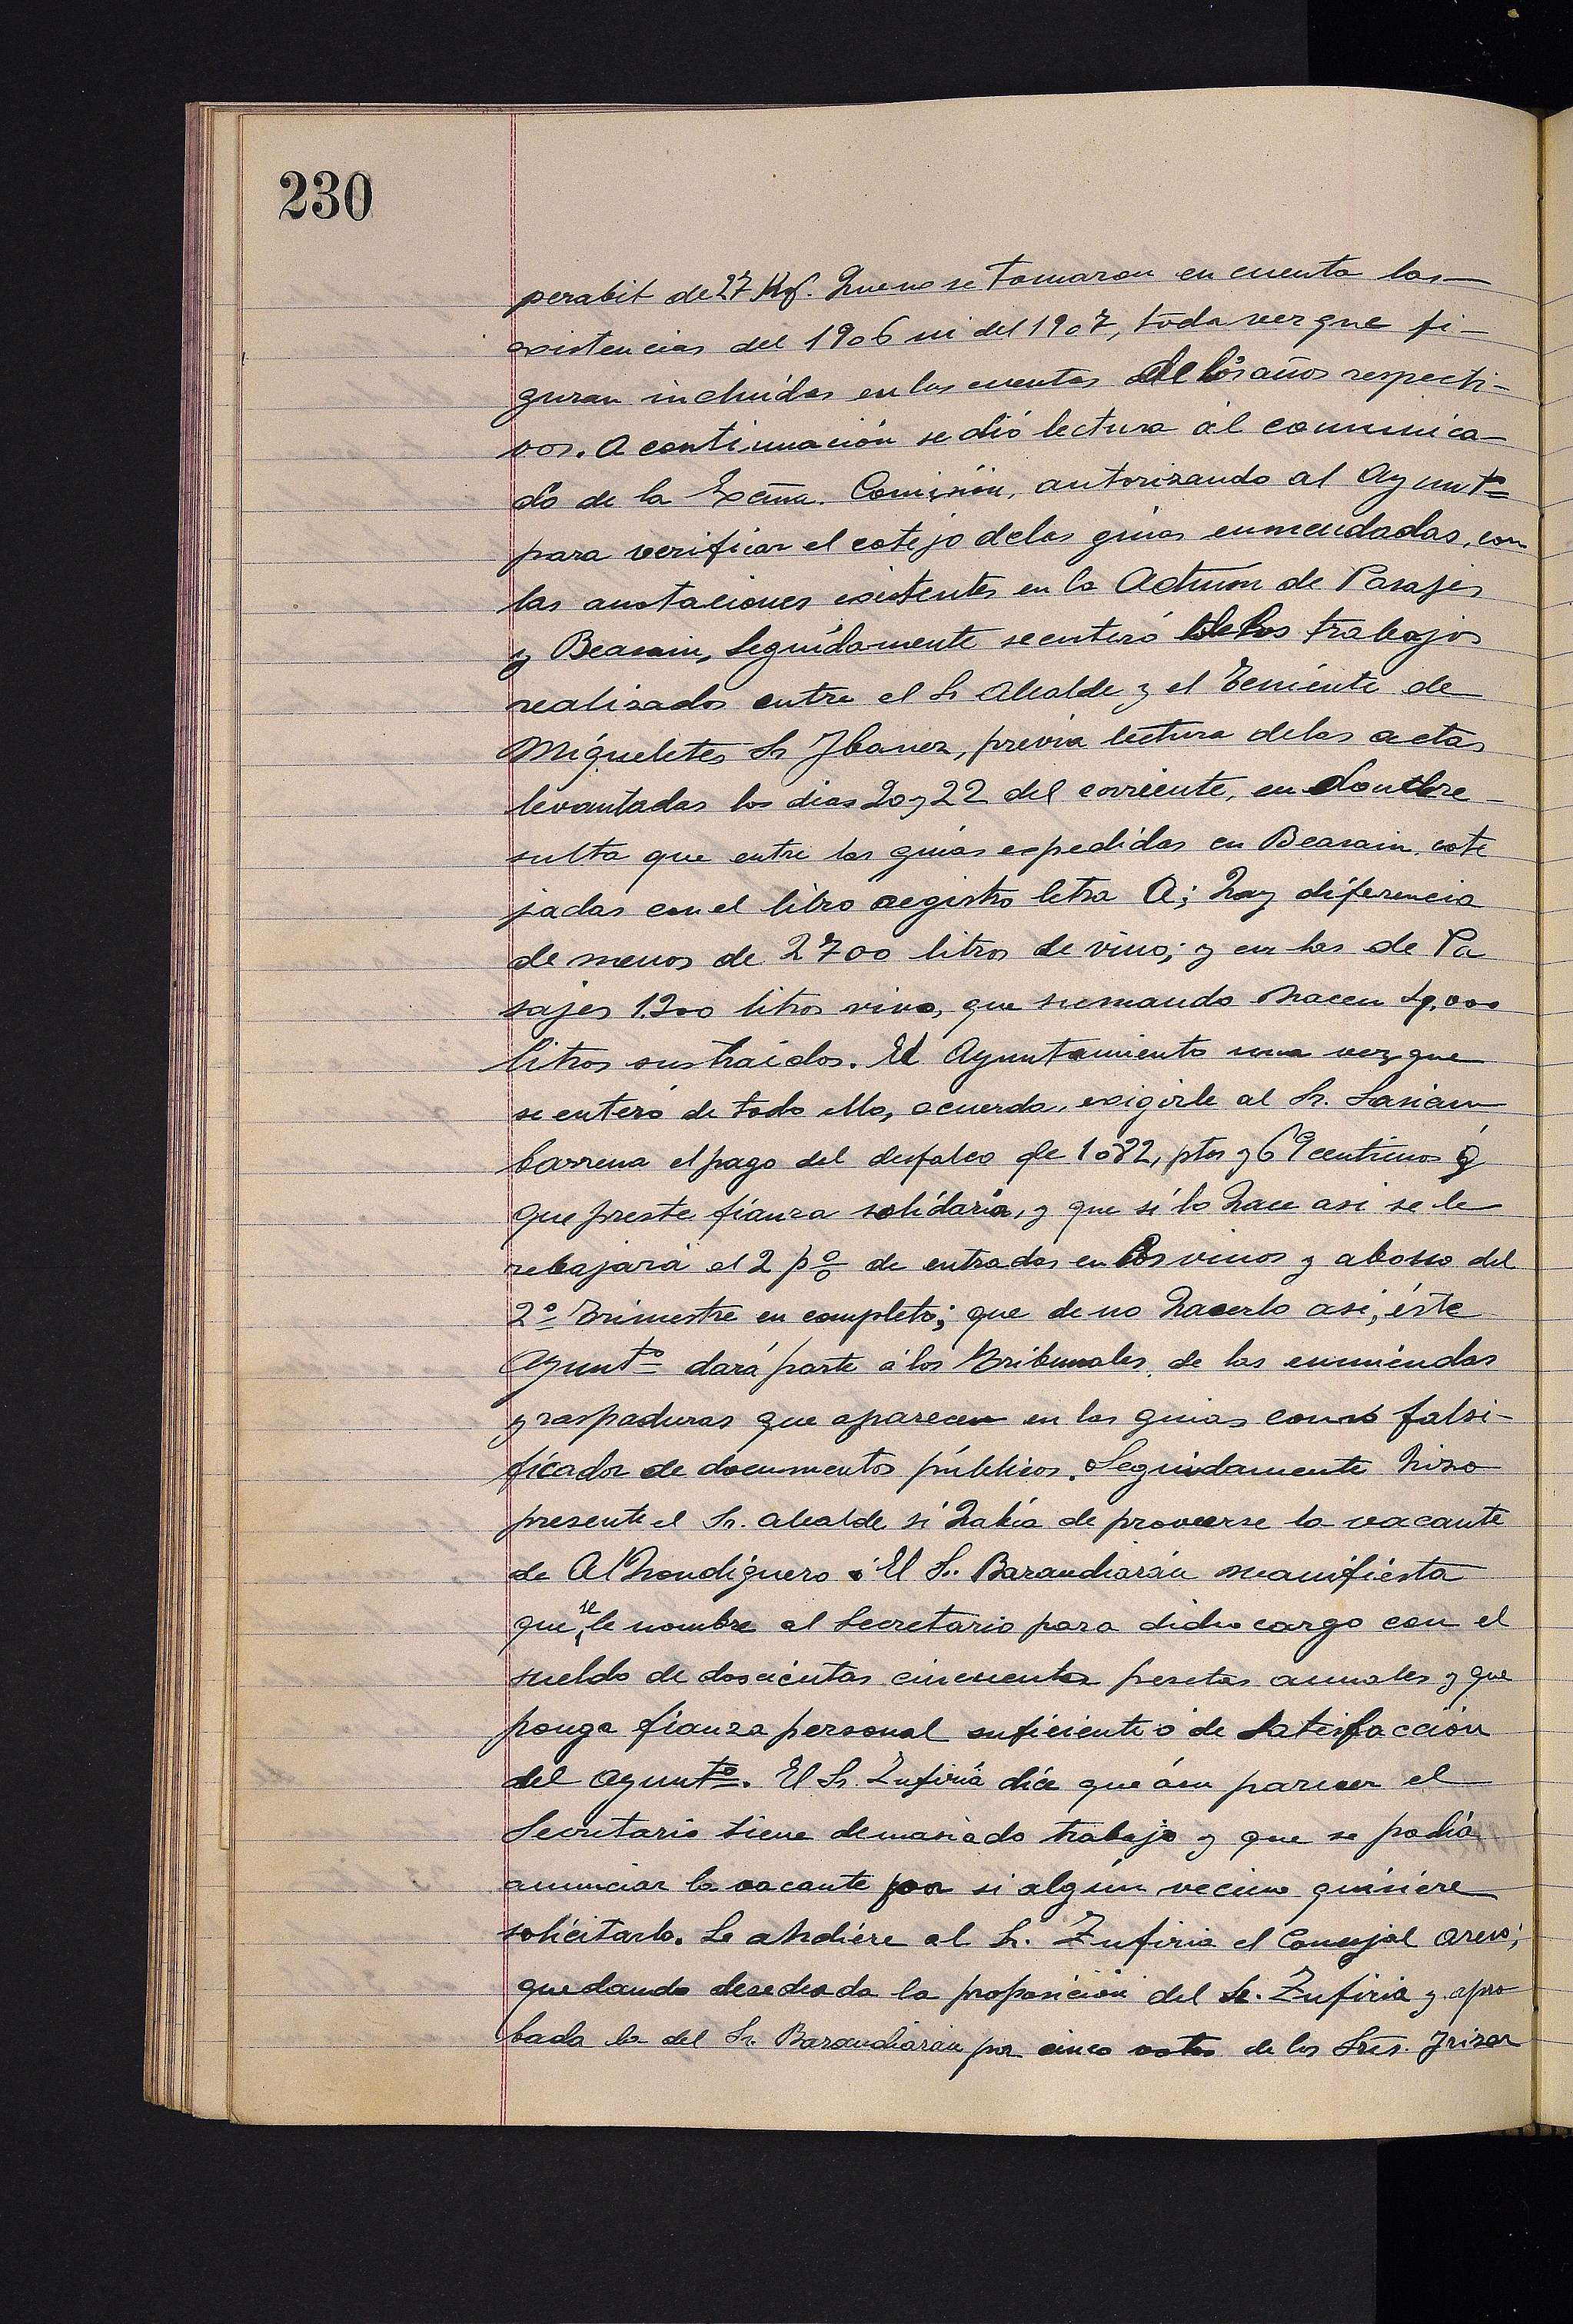 230
perabit de 27 Kg. Que no se tomaron en cuenta las
existencias del 1906 ni del 1907, toda vez que fi-
guran incluidas en las cuentas de los años respecti-
vos. A continuación se dió lectura al comunica-
do de la Excma. Comisión, autorizando al Ayuntº
para verificar el cotejo de las guias enmendadas, con
las anotaciones existentes en la Admon de Pasajes
y Beasain, Seguidamente se enteró de los trabajos
realizados entre el Sr Alcalde y el Teniente de
Migueletes Sr Ibanez, previa lectura de las actas
levantadas los dias 20 y 22 del corriente, en donde re-
sulta que entre las guias espedidas en Beasain cote
jadas con el libro registro letra A; hay diferencia
de menos de 2700 litros de vino; y en las de Pa
sajes 1.300 litros vino, que sumando hacen 4.000
litros sustraidos. El Ayuntamiento una vez que
se enteró de todo ello, acuerda, exigirle al Sr. Lasiam
barrena el pago del desfalco de 1082, ptas y 69 centimos ó
que preste fianza solidaria, y que si lo hace asi se le
rebajará el 2 pº/o de entradas en los vinos y abono del
2º Trimestre en completo; que de no hacerlo asi, éste
Ayuntº dará parte á los Tribunales, de las enmiendas
y raspaduras que aparecen en las guias como falsi-
ficador de documentos públicos. Seguidamente hizo
presente el Sr. alcalde si habia de proveerse la vacante
de Alhondiguero El Sr. Barandiarán manifiesta
que se le nombre al Secretario para dicho cargo con el
sueldo de doscientas cincuenta pesetas anuales y que
ponga fianza personal suficiente ó de satisfacción
del ayuntº. El Sr. Zufiriá dice que á su parecer el
Secretario tiene demasiado trabajo y que se podía
anunciar la vacante por si algún vecino quisiere
solicitarlo. Se athdiére al Sr. Zufiria el Concejal
quedando desechada la proposición del Sr. Zufiria y apro
bada la del Sr. Barandiarán por cinco votos de los Srēs. Irizar